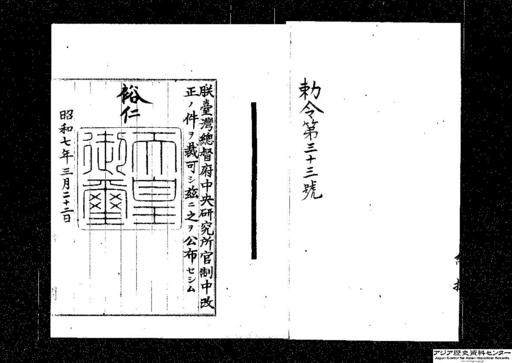 勅令第三十三號
朕臺灣總督府中央硏究所官制中改
正ノ件ヲ裁可シ茲ニ之ヲ公布セシム
裕仁
天皇
御璽
昭和七年三月二十二日
アジア歴史資料センター
Japan Center for Asian Historical Records